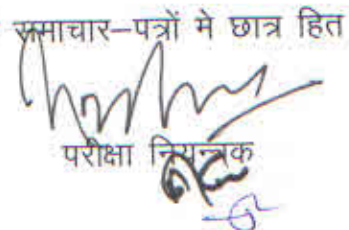 समाचार–पत्रों मे छात्र हित
परीक्षा नियन्त्रक